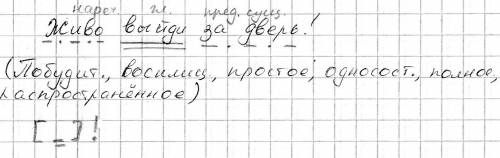 нареч. гл. пред. сущ.
Живо выйди за дверь!
(Побудит., восклиц., простое, односост., полное,
распространённое)
[ = ]!